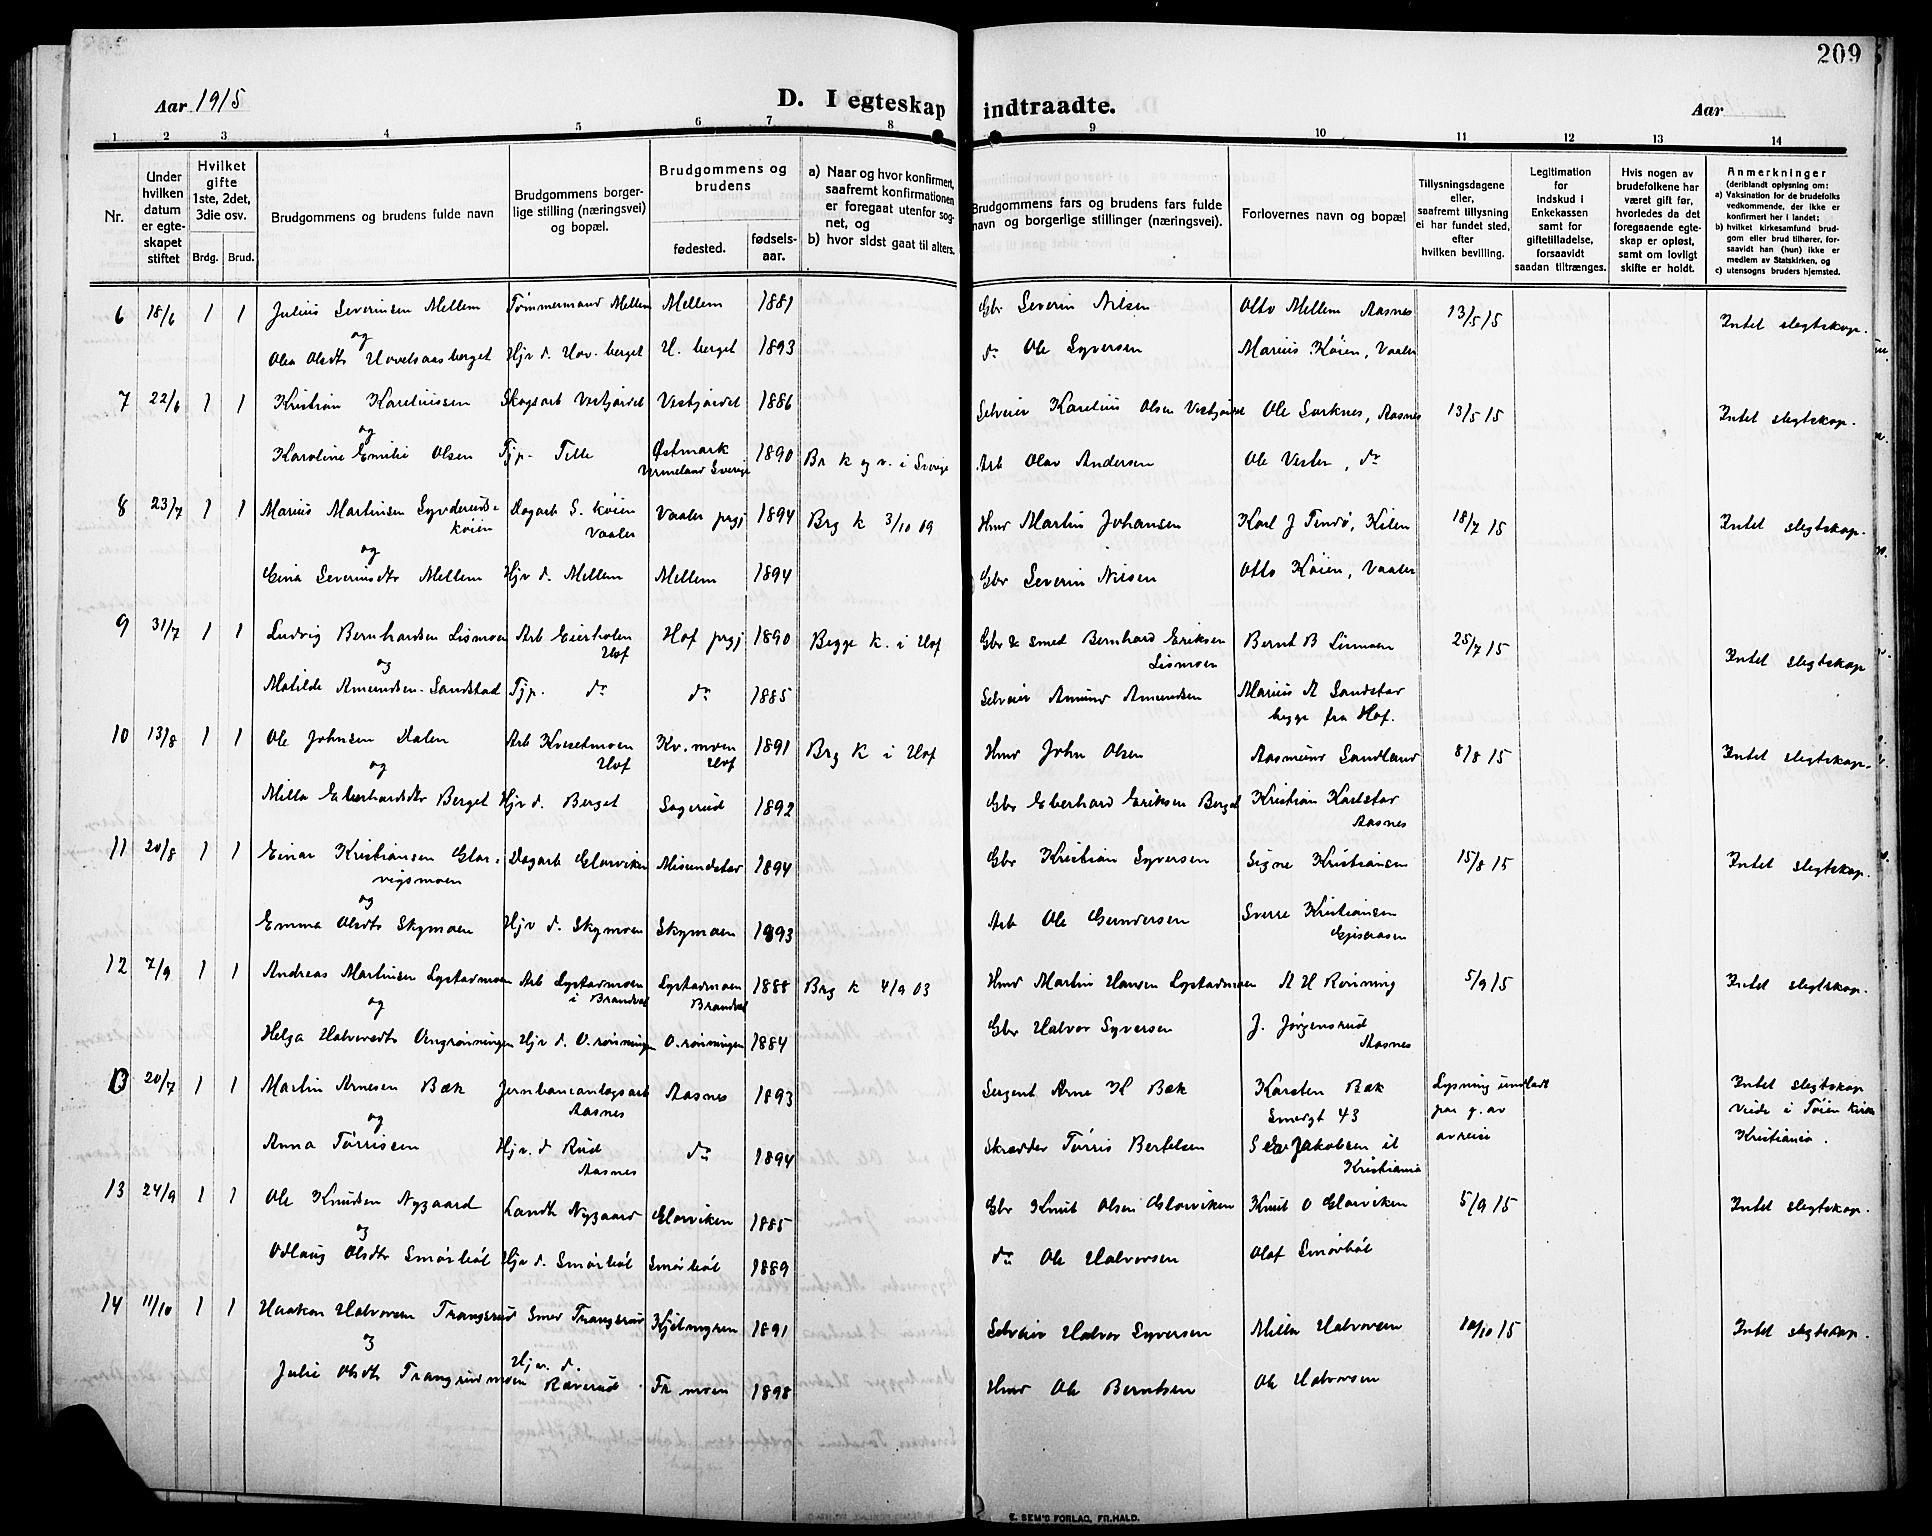 209
Aar 1915
D. I egteskap indtraadte.
Aar
1 2 3 4 5 6 7 8 9 10 11 12 13 14
Nr.
Under hvilken datum er egteskapet stiftet
Hvilket gifte 1ste, 2det, 3die osv.
Brdg. Brud.
Brudgommens og brudens fulde navn
Brudgommens borgerlige stilling (næringsvei) og bopæl.
Brudgommens og brudens
fødested.
fødselsaar.
a) Naar og hvor konfirmert, saafremt konfirmationen er foregaat utenfor sognet, og
b) hvor sidst gaat til alters.
Brudgommens fars og brudens fars fulde navn og borgerlige stillinger (næringsvei).
Forlovernes navn og bopæl
Tillysningsdagene eller, saafremt tillysning ei har fundet sted, efter hvilken bevilling.
Legitimation for indskud i Enkekassen samt for giftetilladelse, forsaavidt saadan tiltrænges.
Hvis nogen av brudefolkene har været gift før, hvorledes da det foregaaende egteskap er opløst, samt om lovligt skifte er holdt.
Anmerkninger (deriblandt oplysning om:
a) Vaksination for de brudefolks vedkommende, der ikke er konfirmert her i landet;
b) hvilket kirkesamfund brudgom eller brud tilhører, forsaavidt han (hun) ikke er medlem av Statskirken, og
c) utensogns bruders hjemsted.
6 18/6 1 1 Julius Severinsen Mellem Tømmermand Mellem Mellem 1881 Gbr Severin Nilsen Otto Mellem Aasnes 13/5 15 Intet slegtskap.
og
Olea Olsdtr Hovelsaasberget Hjv d. Hov.berget H. berget 1893 do Ole Syversen Marius Køien, Vaaler
7 22/6 1 1 Kristian Kareliussen Skogsarb Vestjordet Vestjordet 1886 Selveier Karelius Olsen Vestjordet Ole Sorknes, Aasnes 13/5 15 Intet slegtskap.
og
Karoline Emilie Olsen Tjp. Østmark Vermeland Sverige 1890 Br k og v. i Sverige Arb Olav Andersen Ole Vester, do
8 23/7 1 1 Marius Martinsen Syvderudskøien Dagarb S. køien Vaaler Vaaler prgj 1894 Brg k 3/10 09 Hmd Martin Johansen Karl J Tendø, Kilen 18/7 15 Intet slegtskap.
og
Gina Severinsdtr Mellem Hjv d. Mellem Mellem 1894 Gbr Severin Nilsen Otto Køien, Vaaler
9 31/7 1 1 Ludvig Bernhardsen Lismoen Arb Eierholen Hof Hof prgj 1890 Begge k. i Hof Gbr & smed Bernhard Eriksen Lismoen Bernt B Lismoen 25/7 15 Intet slegtskap
og
Matilde Amundsen-Sandstad Tjp. do do 1885 Selveier Amund Amundsen Marius A Sandstad begge fra Hof.
10 13/8 1 1 Ole Johnsen Dalen Arb Kvesetmoen Hof Kv. moen Hof 1891 Brg k i Hof Hmd John Olsen Aasmund Sandland 8/8 15 Intet slegtskap.
og
Milla Eberhardsdtr Berget Hjv d. Berget Sagerud 1892 Gbr Eberhard Eriksen Berget Kristian Karlstad Aasnes
11 20/8 1 1 Einar Kristiansen Glorvigsmoen Dagarb Glorviken Misundstad 1894 Gbr Kristian Syversen Signe Kristiansen 15/8 15 Intet slegtskap.
og
Emma Olsdtr Skymoen Hjv d. Skymoen Skymoen 1893 Arb Ole Gundersen Sverre Kristiansen
12 7/9 1 1 Andreas Martinsen Lystadmoen Arb Lystadmoen i Brandval Lystadmoen Brandval 1888 Brg k 4/9 03 Hmd Martin Hansen Lystadmoen A H Rønning 5/9 15 Intet slegtskap.
og
Helga Halvorsdtr Ovngrønningen Hjv d. O.rønningen O.rønningen 1884 Gbr Halvor Syversen J. Jørgensrud Aasnes
13 20/7 1 1 Martin Arnesen Bæk Jernbaneanlægsarb Aasnes Aasnes 1893 Sergent Arne K Bæk Karsten Bæk Smedgt 43 Lysning undladt paa g. av avreise Intet slegtskap Viede i Tøien kirke Kristiania.
og
Anna Tørrissen Hjv. d Rud Aasnes do 1894 Skredder Tørris Bertelsen Jakobsen Kristiania
13 24/9 1 1 Ole Knudsen Nygaard Landh Nygaard Glorviken 1885 Gbr Knut Olsen Glorviken Knut O Glorviken 5/9 15 Intet slegtskap.
og
Odlaug Olsdtr Smørhøl Hjv d. Smørhøl Smørhøl 1889 do Ole Halvorsen Olaf Smørhøl
14 11/10 1 1 Haakon Halvorsen Trangsrud Smed Trangsrud Kjølmyren 1891 Selveier Halvor Syversen Milla Halvorsen 10/10 15 Intet slegtskap.
og
Julie Olsdtr Trangsrudmoen Hjv. d. Raverud Tr. moen 1898 Hmd Ole Berntsen Ole Halvorsen
E. SEM'S FORLAG, FR.HALD.